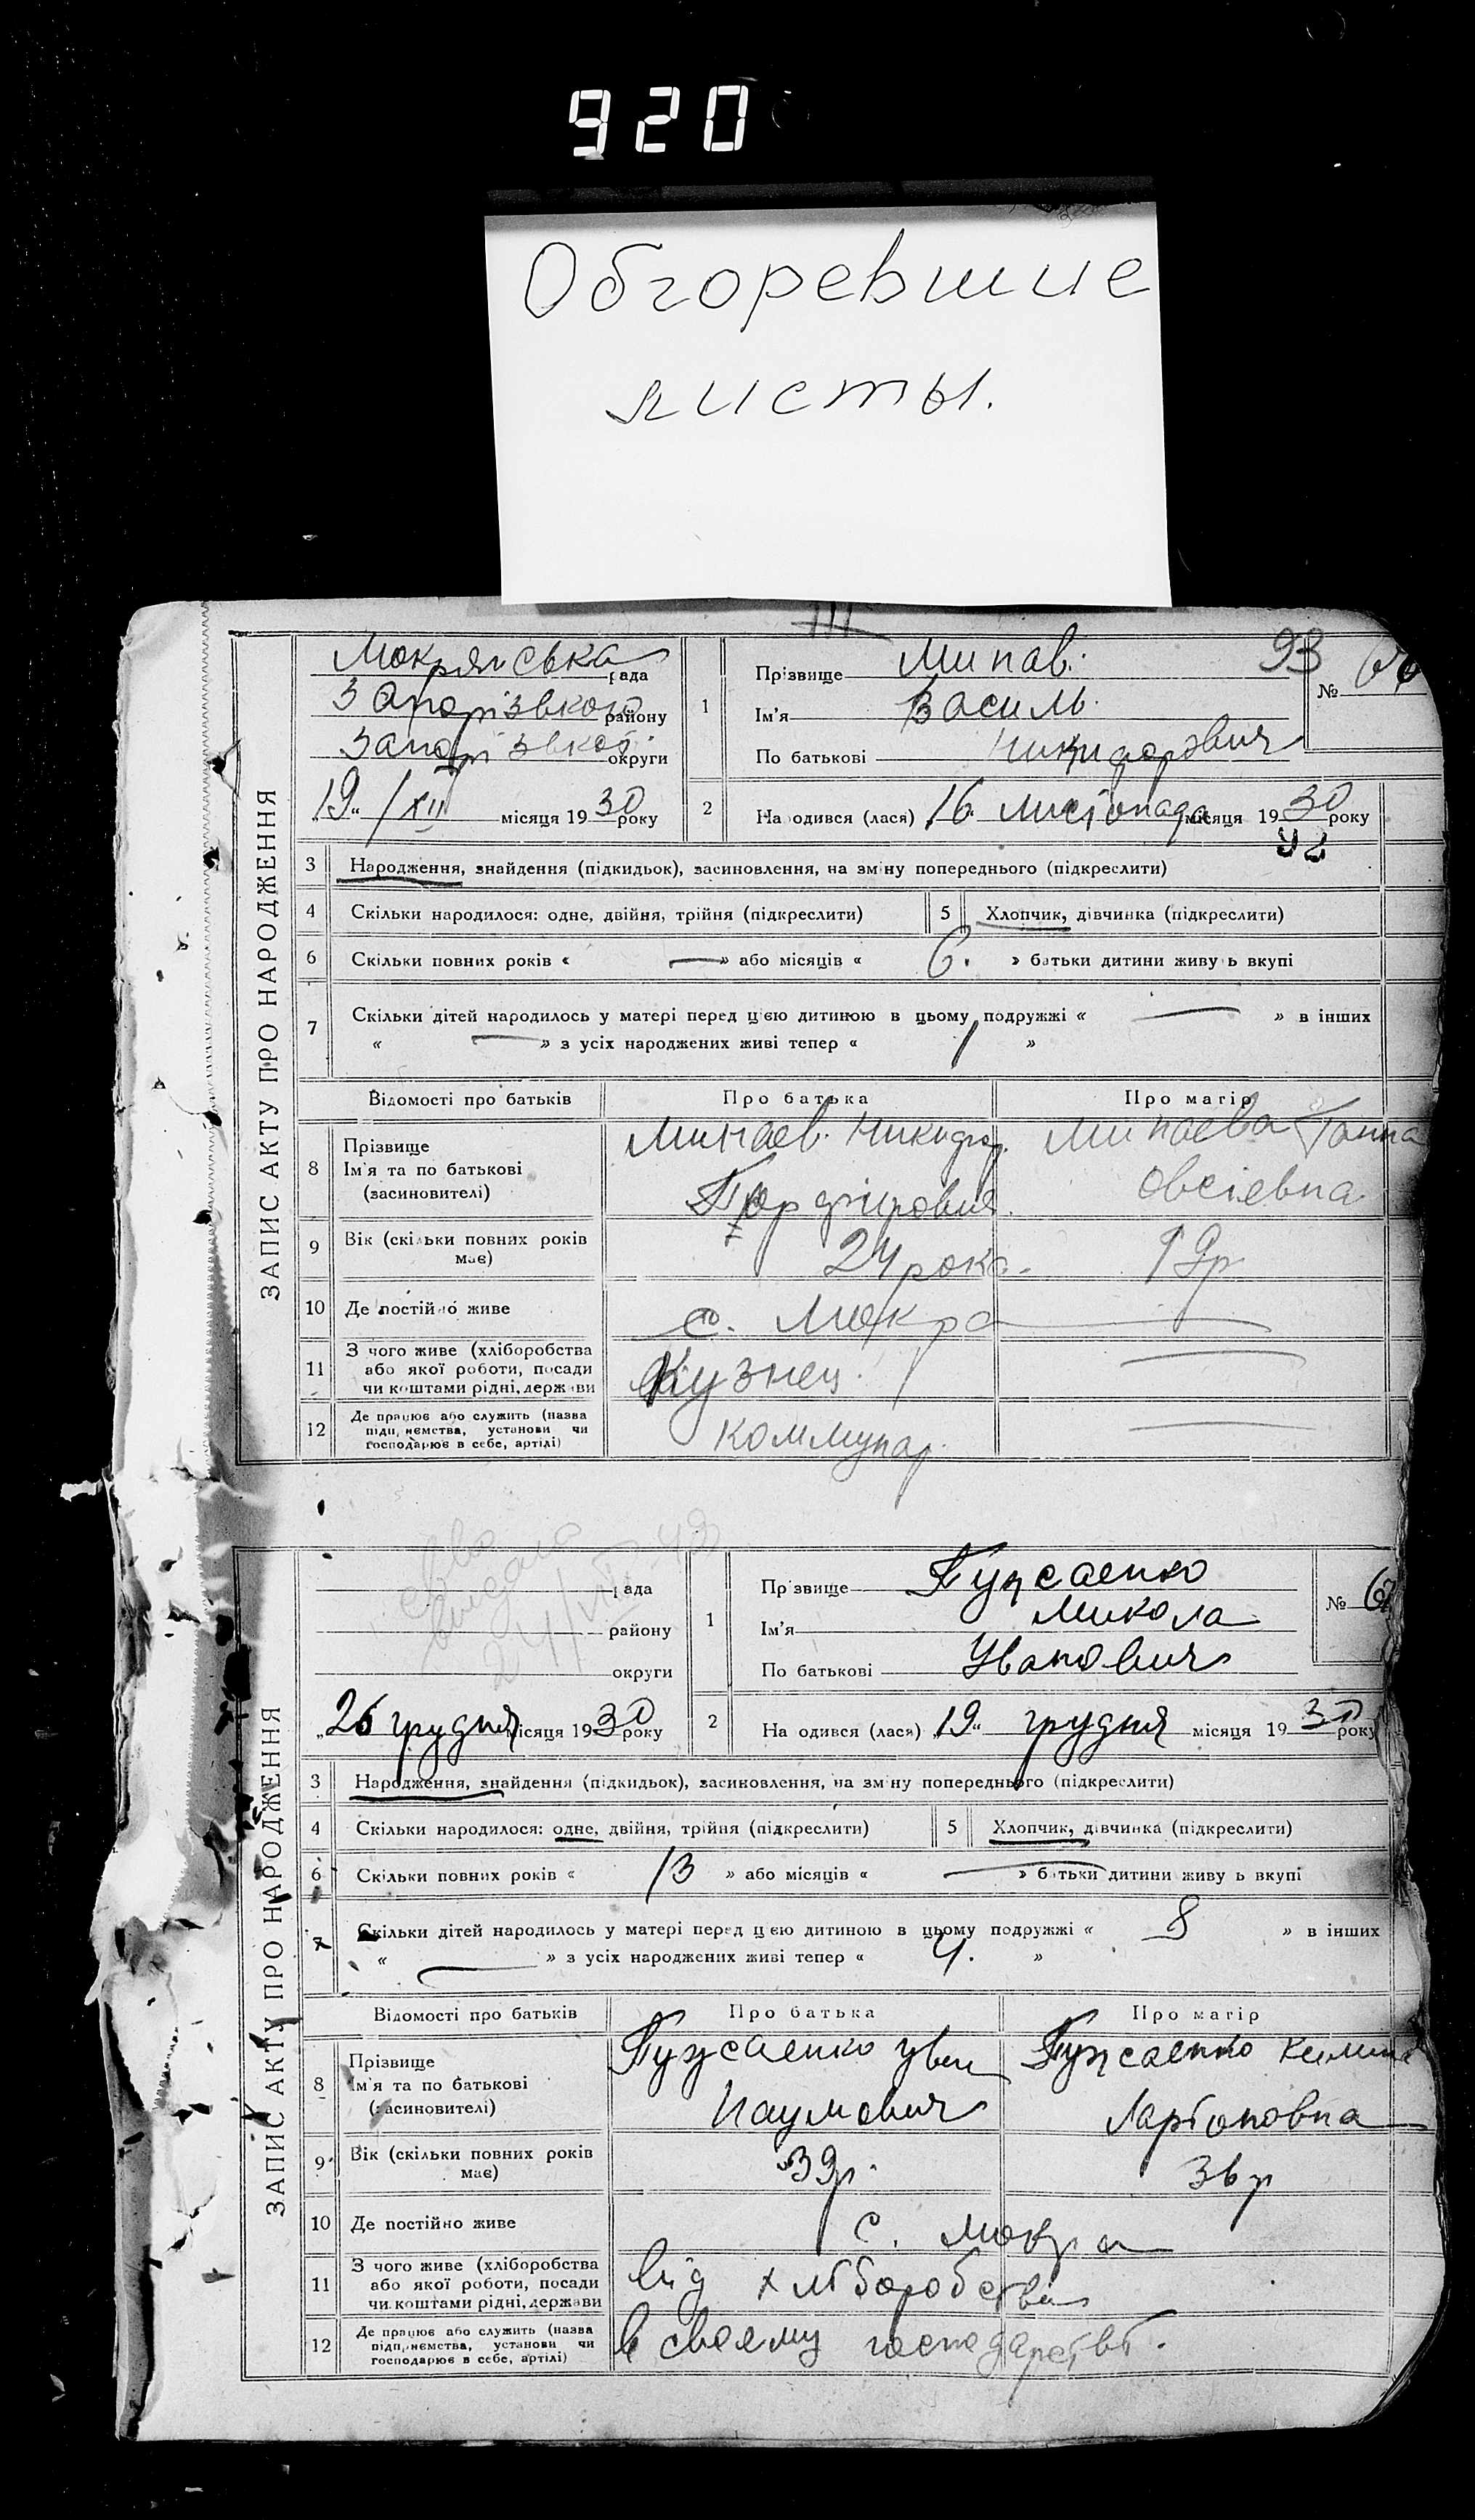 920
Обгоревшие
листы.
III
ЗАПИС АКТУ ПРО НАРОДЖЕННЯ
Мокрянська рада
Запорізкого району
Запорізкої округи
„19“ /XII місяця 1930 року
1
Прізвище Минав.
Ім'я Василь.
По батькові Никифорович
93
№
2
На одився (лася) „16“ листопада місяця 1930 року
92
3 Народження, знайдення (підкидьок), засиновлення, на зміну попереднього (підкреслити)
4 Скільки народилося: одне, двійня, трійня (підкреслити) 5 Хлопчик, дівчинка (підкреслити)
6 Скільки повних років « — » або місяців « 6. » батьки дитини живуть вкупі
7 Скільки дітей народилось у матері перед цією дитиною в цьому подружжі « — » в інших
« — » з усіх народжених живі тепер « 1 »
Відомості про батьків Про батька Про матір
8 Прізвище Ім'я та по батькові (засиновителі)
Минаев. Никифор. Порфирович
Минаева Ганна Овсіевна
9 Вік (скільки повних років має) 24 рока. 19р
10 Де постійно живе с. Мокра —
11 З чого живе (хліборобства або якої роботи, посади чи коштами рідні, держави Кузнец. —
12 Де працює або служить (назва підприємства, установи чи господарює в себе, артілі) Коммунар. —
выдано
ЗАПИС АКТУ ПРО НАРОДЖЕННЯ
рада
району
округи
„26 грудня місяця 1930 року
1
Прізвище
Ім'я Микола
По батькові Иванович
№ 67
2
На одився (лася) „19“ грудня місяця 1930 року
3 Народження, знайдення (підкидьок), засиновлення, на зміну попереднього (підкреслити)
4 Скільки народилося: одне, двійня, трійня (підкреслити) 5 Хлопчик, дівчинка (підкреслити)
6 Скільки повних років « 13 » або місяців « — » батьки дитини живуть вкупі
7 Скільки дітей народилось у матері перед цією дитиною в цьому подружжі « 8 » в інших
« — » з усіх народжених живі тепер « 4. »
Відомості про батьків Про батька Про матір
8 Прізвище Ім'я та по батькові (засиновителі)
Иван Наумович
Ларіоновна
9 Вік (скільки повних років має) 39р. 36р
10 Де постійно живе с. Мокра
11 З чого живе (хліборобства або якої роботи, посади чи коштами рідні, держави від хліборобства
12 Де працює або служить (назва підприємства, установи чи господарює в себе, артілі) в своему господарстві.